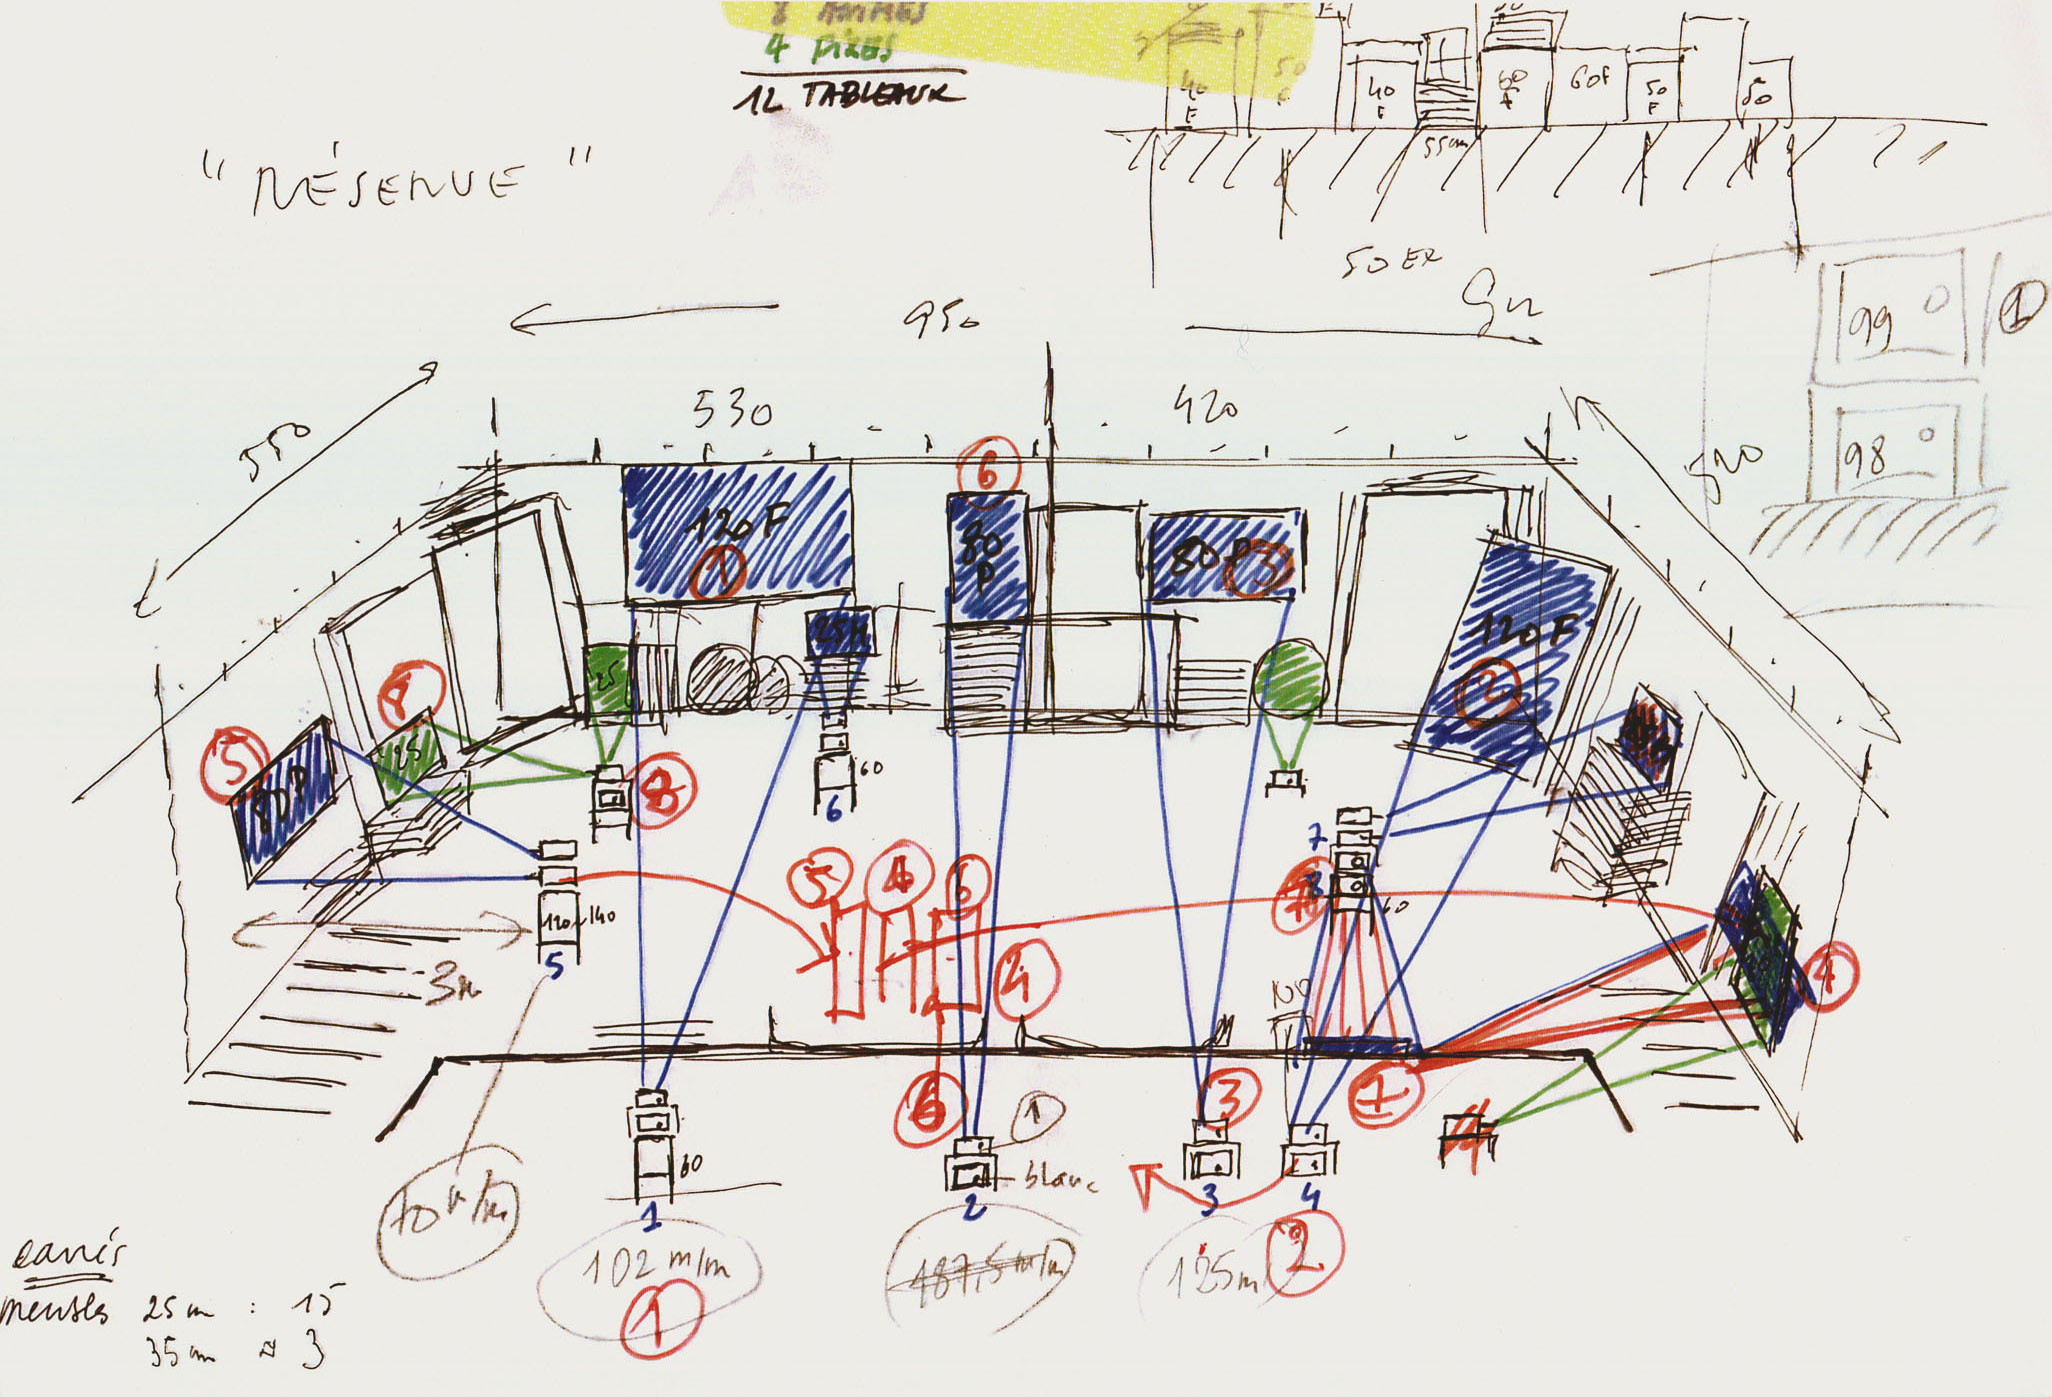 8 ANIMÉS
4 FIXES
12 TABLEAUX
"RÉSERVE"
40
F
50
40
F
60
F
60F
50
F
50
55cm
50 ER
950
99
1
98
530
420
550
520
6
120F
1
80
P
80P
3
120F
2
25
5
80P
25
8
60
6
7
60
5
4
6
120-140
5
3m
4
100
7
4
6
1
3
60
blanc
1
2
3
4
70 m/m
102 m/m
187,5 m/m
125m
2
1
carrés
meubles 25 cm : 15
35 cm 3